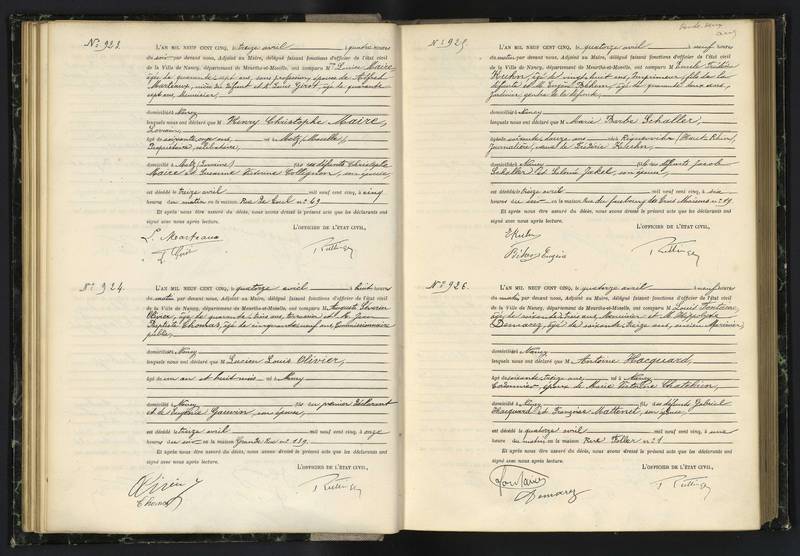 No 923.
L'AN MIL NEUF CENT CINQ, le treize avril à quatre heures
du soir par devant nous, Adjoint au Maire, délégué faisant fonctions d'officier de l'état civil
de la Ville de Nancy, département de Meurthe-et-Moselle, ont comparu M Louise Maire
âgée de quarante sept ans, sans profession, épouse de Alfred
Marteaux, nièce du défunt et Louis Girot, âgé de quarante
sept ans, Menuisier,
domiciliés à Nancy
lesquels nous ont déclaré que M Henry Christophe Maire,
âgé de soixante ans né à Metz (Moselle)
Propriétaire, célibataire,
domicilié à Metz (Lorraine) fils des défunts Christophe
Maire et Susanne Collignon, son épouse,
est décédé le treize avril mil neuf cent cinq, à cinq
heures du matin en la maison Rue no 49
Et après nous être assuré du décès, nous avons dressé le présent acte que les déclarants ont
signé avec nous après lecture.
L'OFFICIER DE L'ÉTAT CIVIL,
L. Marteaux
No 924.
L'AN MIL NEUF CENT CINQ, le quatorze avril à huit heures
du matin par devant nous, Adjoint au Maire, délégué faisant fonctions d'officier de l'état civil
de la Ville de Nancy, département de Meurthe-et-Moselle, ont comparu M Auguste
Olivier, âgé de quarante trois ans, et M. Jean
Baptiste Thomas, âgé de cinquante neuf ans, Commissionnaire
public,
domiciliés à Nancy
lesquels nous ont déclaré que M Lucien Louis Olivier,
âgé de un an et huit mois né à Nancy
domicilié à Nancy fils du premier déclarant
et de son épouse,
est décédé le treize avril mil neuf cent cinq, à onze
heures du soir en la maison Grande Rue no 119
Et après nous être assuré du décès, nous avons dressé le présent acte que les déclarants ont
signé avec nous après lecture.
L'OFFICIER DE L'ÉTAT CIVIL,
Olivier
Thomas
No 925.
L'AN MIL NEUF CENT CINQ, le quatorze avril à neuf heures
du matin par devant nous, Adjoint au Maire, délégué faisant fonctions d'officier de l'état civil
de la Ville de Nancy, département de Meurthe-et-Moselle, ont comparu M Emile
âgé de vingt huit ans, Imprimeur, fils de la
défunte et M. Eugène âgé de quarante deux ans,
domiciliés à Nancy
lesquels nous ont déclaré que M Marie Barbe Schaller,
âgée de soixante douze ans née à (Haut Rhin),
Journalière, veuve de Frédéric
domiciliée à Nancy fille des défunts Jacob
Schaller et Salomé Jakel, son épouse,
est décédée le treize avril mil neuf cent cinq, à six
heures du soir en la maison Rue du faubourg des Trois Maisons no 19
Et après nous être assuré du décès, nous avons dressé le présent acte que les déclarants ont
signé avec nous après lecture.
L'OFFICIER DE L'ÉTAT CIVIL,
Eugène
No 926.
L'AN MIL NEUF CENT CINQ, le quatorze avril à neuf heures
du matin par devant nous, Adjoint au Maire, délégué faisant fonctions d'officier de l'état civil
de la Ville de Nancy, département de Meurthe-et-Moselle, ont comparu M Louis Fontaine
âgé de soixante trois ans, Menuisier et M. Hippolyte
Demarez, âgé de soixante treize ans, ancien Marinier
domiciliés à Nancy
lesquels nous ont déclaré que M Antoine Hacquard,
âgé de soixante treize ans né à Nancy
Cordonnier, époux de Marie Victorine Chatelain,
domicilié à Nancy fils des défunts Gabriel
Hacquard et Françoise son épouse,
est décédé le quatorze avril mil neuf cent cinq, à une
heure du matin en la maison Rue Feller no 1
Et après nous être assuré du décès, nous avons dressé le présent acte que les déclarants ont
signé avec nous après lecture.
L'OFFICIER DE L'ÉTAT CIVIL,
Fontaine
Demarez